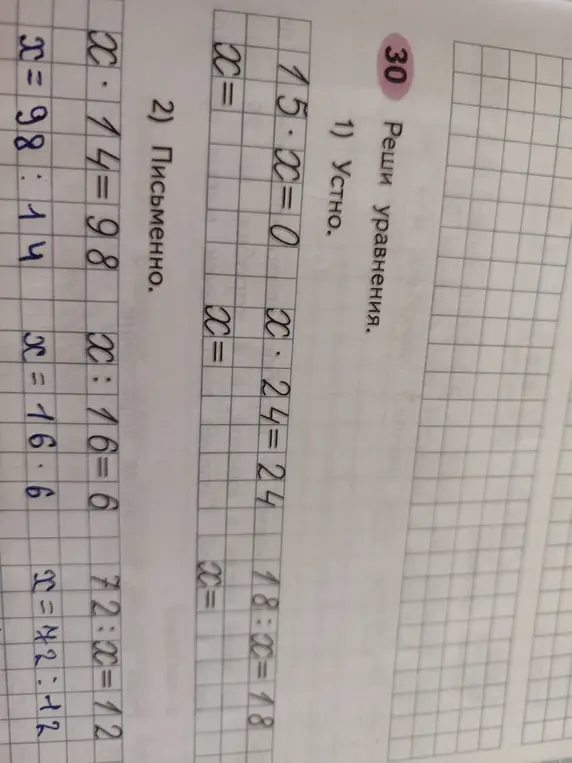 30 Реши уравнения.
1) Устно.
15 · x = 0 x · 24 = 24 18 : x = 18
x = x = x =
2) Письменно.
x · 14 = 98 x : 16 = 6 72 : x = 12
x = 98 : 14 x = 16 · 6 x = 72 : 12